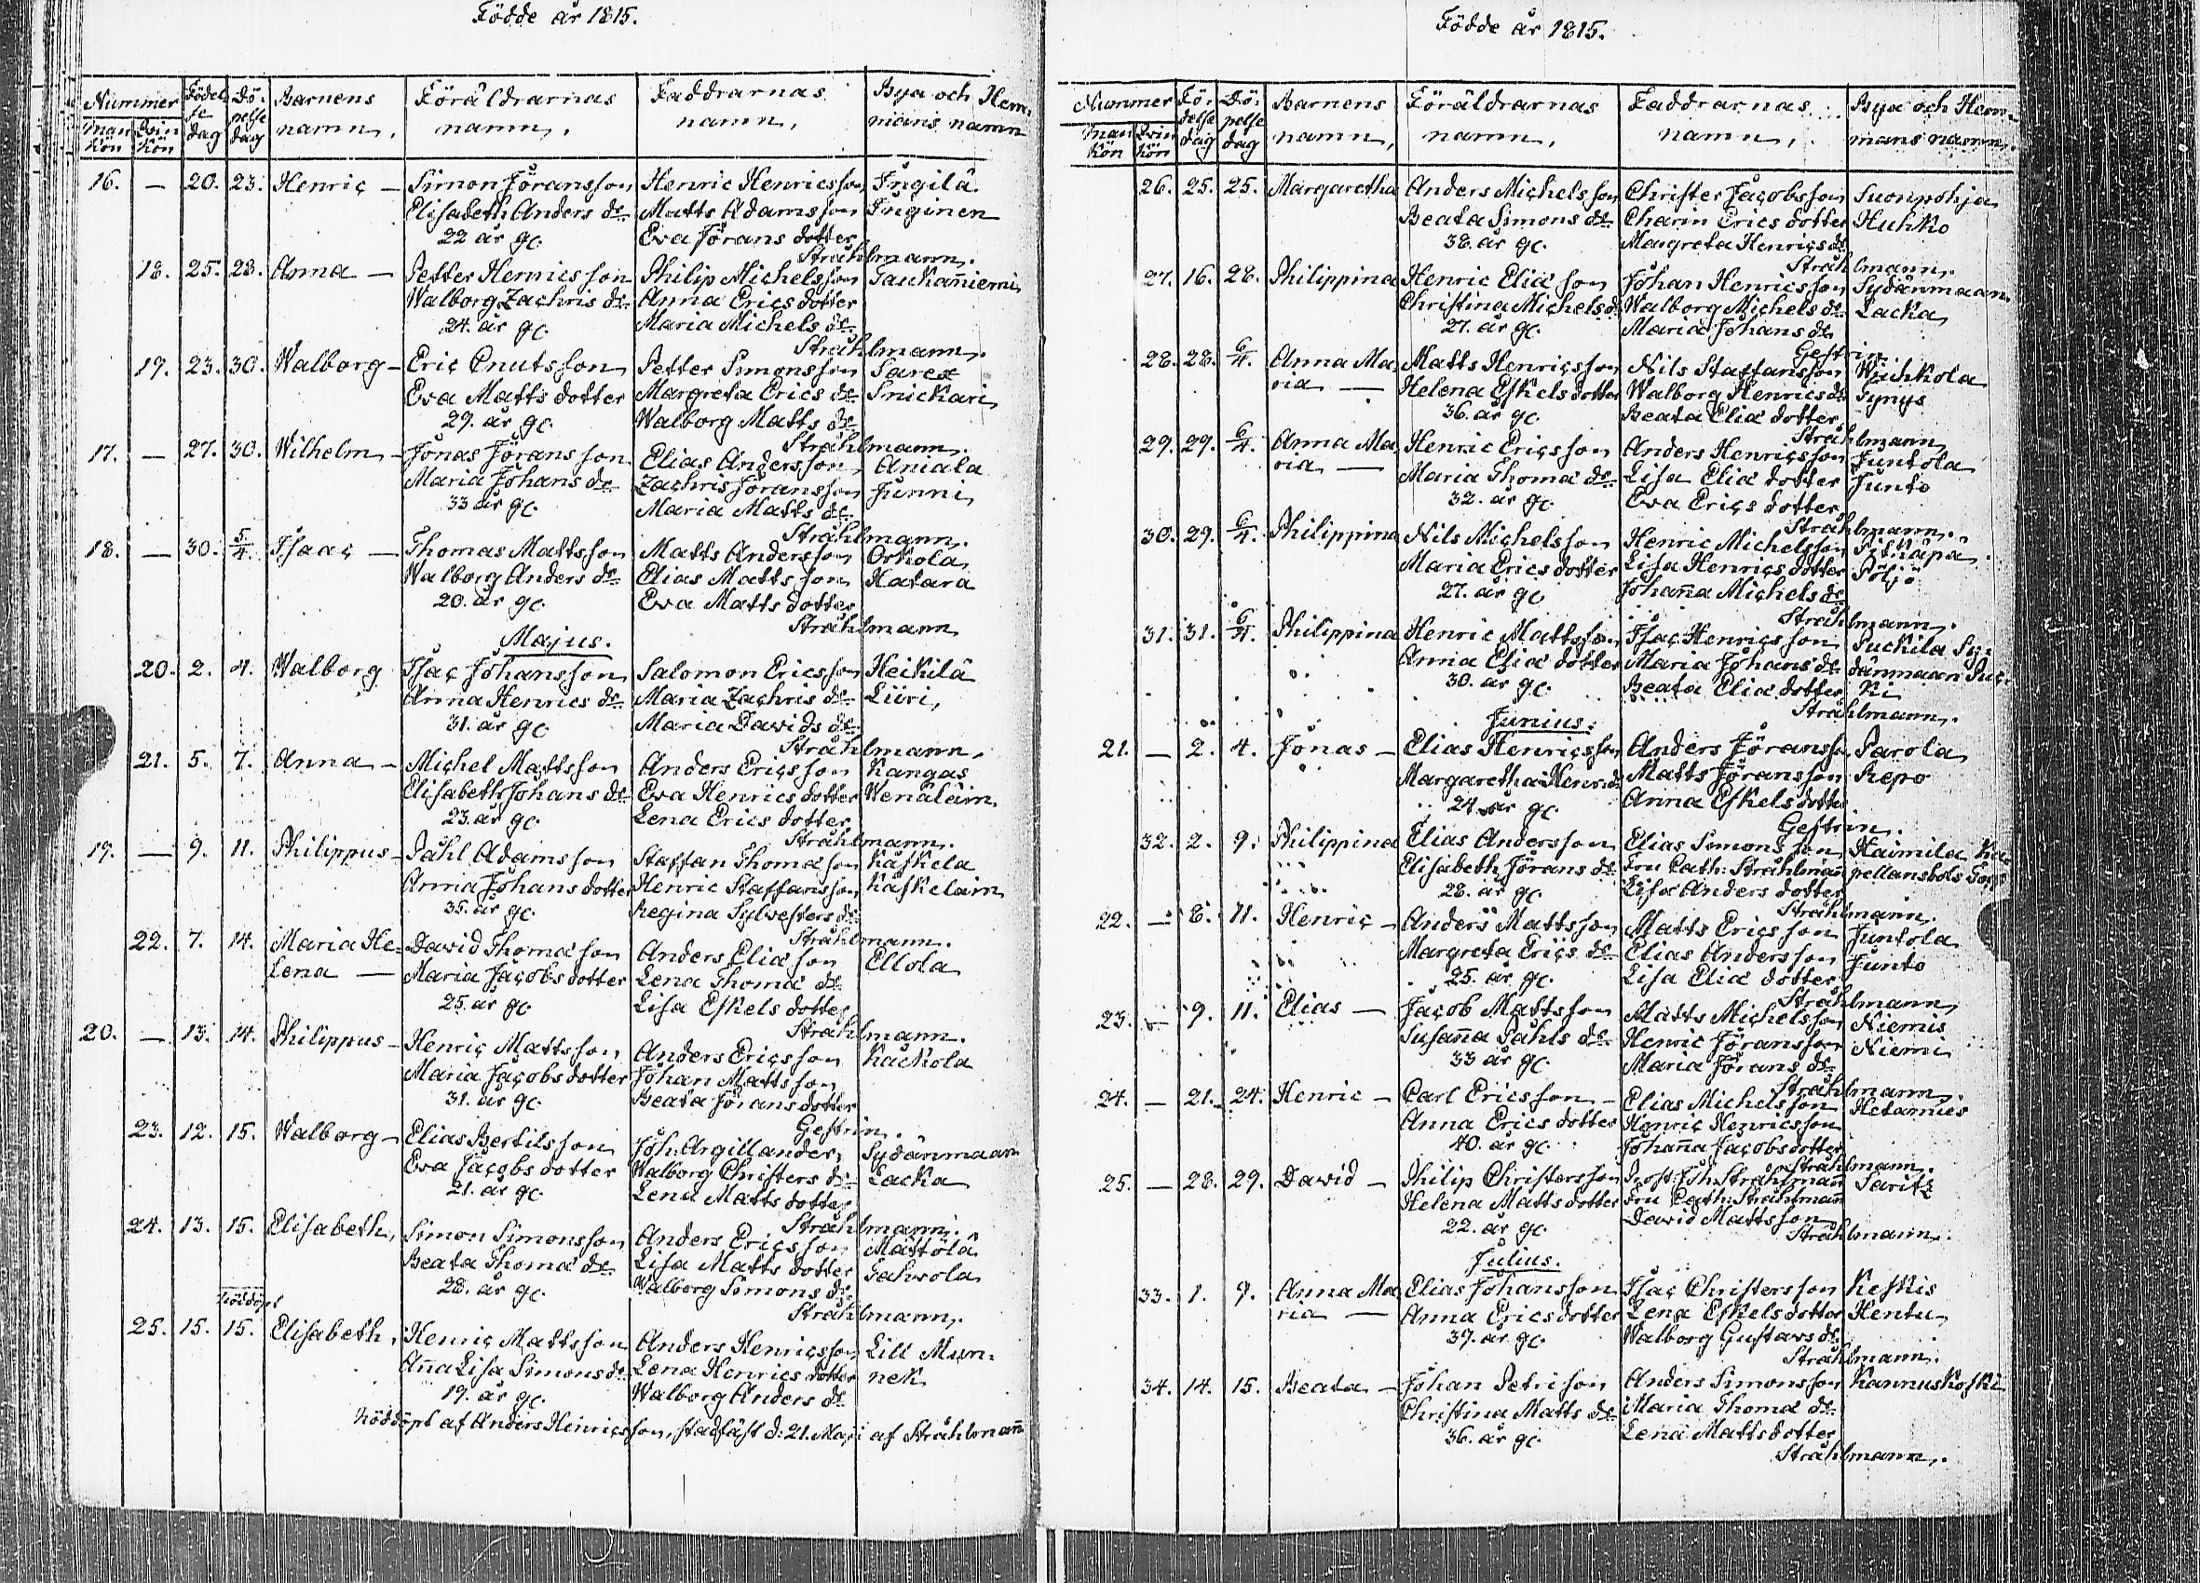 Födde år 1815.
Nummer Födelse dag Döpelse dag Barnens namn, Föräldrarnas namn, Faddrarnas namn, Bya och Hemmans namn
Mankön Qvinkön
16. — 20. 23. Henric — Simon Jöransson Henric Henricsson Ingilä
Elisabeth Anders dr Matts Adamsson Inginen
22 år gl. Eva Jörans dotter
Stråhlmann.
18. 25. 28. Anna — Petter Henricsson Philip Michelsson Taukaniemi
Walborg Zachris dr Anna Erics dotter
24. år gl. Maria Michels dr
Stråhlmann.
19. 23. 30. Walborg — Eric Cnutsson Petter Simonsson Sares
Eva Matts dotter Margreta Erics dr Snickari
29. år gl. Walborg Matts dr
Stråhlmann.
17. — 27. 30. Wilhelm — Jonas Jöransson Elias Andersson Aniala
Maria Johans dr Zachris Jöransson Junni
33 år gl. Maria Matts dr
Stråhlmann.
18. — 30. 5/4. Isaac — Thomas Mattsson Matts Andersson Orkola
Walborg Anders dr Elias Mattsson Hatara
20. år gl. Eva Matts dotter
Stråhlmann
Majus.
20. 2. 4. Walborg Isac Johansson Salomon Ericsson Heikilä
Anna Henrics dr Maria Zachris dr Liiri,
31. år gl. Maria Davids dr
Stråhlmann,
21. 5. 7. Anna — Michel Mattsson Anders Ericsson Kangas
Elisabeth Johans dr Eva Henrics dotter Wenäläin
23. år gl. Lena Erics dotter
Stråhlmann.
19. — 9. 11. Philippus — Påhl Adamsson Staffan Thomasson Käskela
Anna Johans dotter Henric Staffansson Käskelain
35. år gl. Regina Sylvesters dr
Stråhlmann.
22. 7. 14. Maria He= David Thomasson Anders Eliasson Ellola
lena — Maria Jacobs dotter Lena Thomä dr
25. år gl. Lisa Eskels dotter
Stråhlmann.
20. — 13. 14. Philippus — Henric Mattsson Anders Ericsson Kackola
Maria Jacobs dotter Johan Mattsson
31. år gl. Beata Jörans dotter
Gestrin.
23. 12. 15. Walborg — Elias Bertilsson Joh: Argillander, Sydänmaan
Eva Jacobs dotter Walborg Christers dr Lacka
21. år gl. Lena Matts dotter
Stråhlmann.
24. 13. 15. Elisabeth, Simon Simonsson Anders Ericsson Mättölä
Beata Thomä dr Lisa Matts dotter Tahvola
28. år gl. Walborg Simons dr
Stråhlmann.
Nöddöpt
25. 15. 15. Elisabeth, Henric Mattsson Anders Henricsson Lill Mun=
Aña Lisa Simons dr Lena Henrics dotter nek
19. år gl. Walborg Anders dr
Nöddöpt af Anders Heinricsson, stadfäst d: 21. Maji af Stråhlmañ
Födde år 1815.
Nummer Födelse dag Döpelse dag Barnens namn, Föräldrarnas namn, Faddrarnas namn, Bya och Hemmans namn,
Mankön Qvinkön
26. 25. 25. Margaretha Anders Michelsson Christer Jacobsson Suonpohja
Beata Simons dr Charin Erics dotter Huhko
38. år gl. Margreta Henrics dr
Stråhlmann.
27. 16. 28. Philippina Henric Eliä son Johan Henricsson Sydänmaan
Christina Michels dr Walborg Michels dr Lacka
27. år gl. Maria Johans dr
Gestrin
28. 28. 6/4. Anna Ma Matts Henricsson Nils Staffansson Wuhkola
ria — Helena Eskels dotter Walborg Henrics dr Synys
36. år gl. Beata Eliä dotter
Stråhlmann,
29. 29. 6/4. Anna Ma Henric Ericsson Anders Henricsson Juntola
ria — Maria Thomä dr Lisa Eliä dotter Junto
32. år gl. Eva Erics dotter
Stråhlmann.
30. 29. 6/4. Philippina Nils Michelsson Henric Michelsson
Maria Erics dotter Lisa Henrics dotter Pöljö
27. år gl. Johaña Michels dr
Stråhlmann.
31. 31. 6/4. Philippina Henric Mattsson Isac Henricsson Suckila Sy=
Anna Eliä dotter Maria Johans dr dänmaan Suc=
30. år gl. Beata Eliä dotter ki
Stråhlmann.
Junius.
21. — 2. 4. Jonas — Elias Henricsson Anders Jöransson Parola
Margaretha Henrics dr Matts Jöransson Repo
24. år gl. Anna Eskels dotter
Gestrin.
32. 2. 9. Philippina Elias Andersson Elias Simonsson Haimila Ka=
Elisabeth Jörans dr Fru Cath: Stråhlmañ pellansbols
28. år gl. Lisa Anders dotter
Stråhlmann.
22. — 8. 11. Henric — Anders Mattsson Matts Ericsson Juntola
Margreta Erics dr Elias Andersson Junto
25. år gl. Lisa Eliä dotter
Stråhlmann
23. — 9. 11. Elias — Jacob Mattsson Matts Michelsson Niemis
Susaña Påhls dr Henric Jöransson Niemi
33 år gl. Maria Jörans dr
Stråhlmann.
24. — 21. 24. Henric — Carl Ericsson — Elias Michelsson Hetamies
Anna Erics dotter Henric Henricsson
40. år gl. Johaña Jacobs dotter
Stråhlmann.
25. — 28. 29. David — Philip Christersson Prost: Joh: Stråhlmañ Saritz
Helena Matts dotter Fru Cath: Stråhlmañ
22. år gl. David Mattsson
Stråhlmann.
Julius.
33. 1. 9. Anna Ma Elias Johansson Isac Christersson Keskis
ria — Anna Erics dotter Lena Eskels dotter Hentu
37. år gl. Walborg Gustavs dr
Stråhlmann.
34. 14. 15. Beata — Johan Petrison Anders Simonsson Kannuskoski
Christina Matts dr Maria Thomä dr
36. år gl. Lena Matts dotter
Stråhlmann.